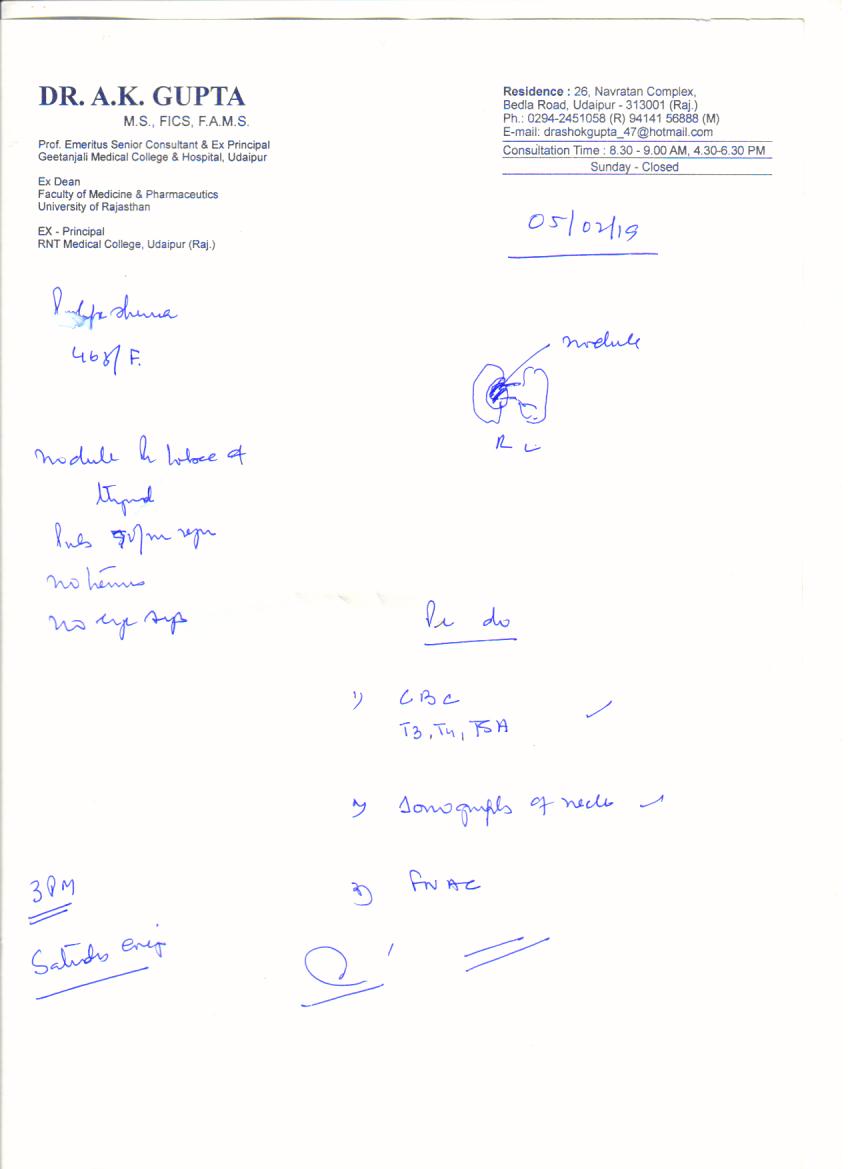 DR. A.K. GUPTA
M.S., FICS, F.A.M.S.
Prof. Emeritus Senior Consultant & Ex Principal
Geetanjali Medical College & Hospital, Udaipur
Ex Dean
Faculty of Medicine & Pharmaceutics
University of Rajasthan
EX - Principal
RNT Medical College, Udaipur (Raj.)
Residence : 26, Navratan Complex,
Bedla Road, Udaipur - 313001 (Raj.)
Ph.: 0294-2451058 (R) 94141 56888 (M)
E-mail: drashokgupta_47@hotmail.com
Consultation Time : 8.30 - 9.00 AM, 4.30-6.30 PM
Sunday - Closed
05/02/19
nodule
R L
nodule R lobe of
thyroid
no
no eye
do
1) CBC
T3, T4, TSH
2) Sonography of neck
3) FNAC
3 PM